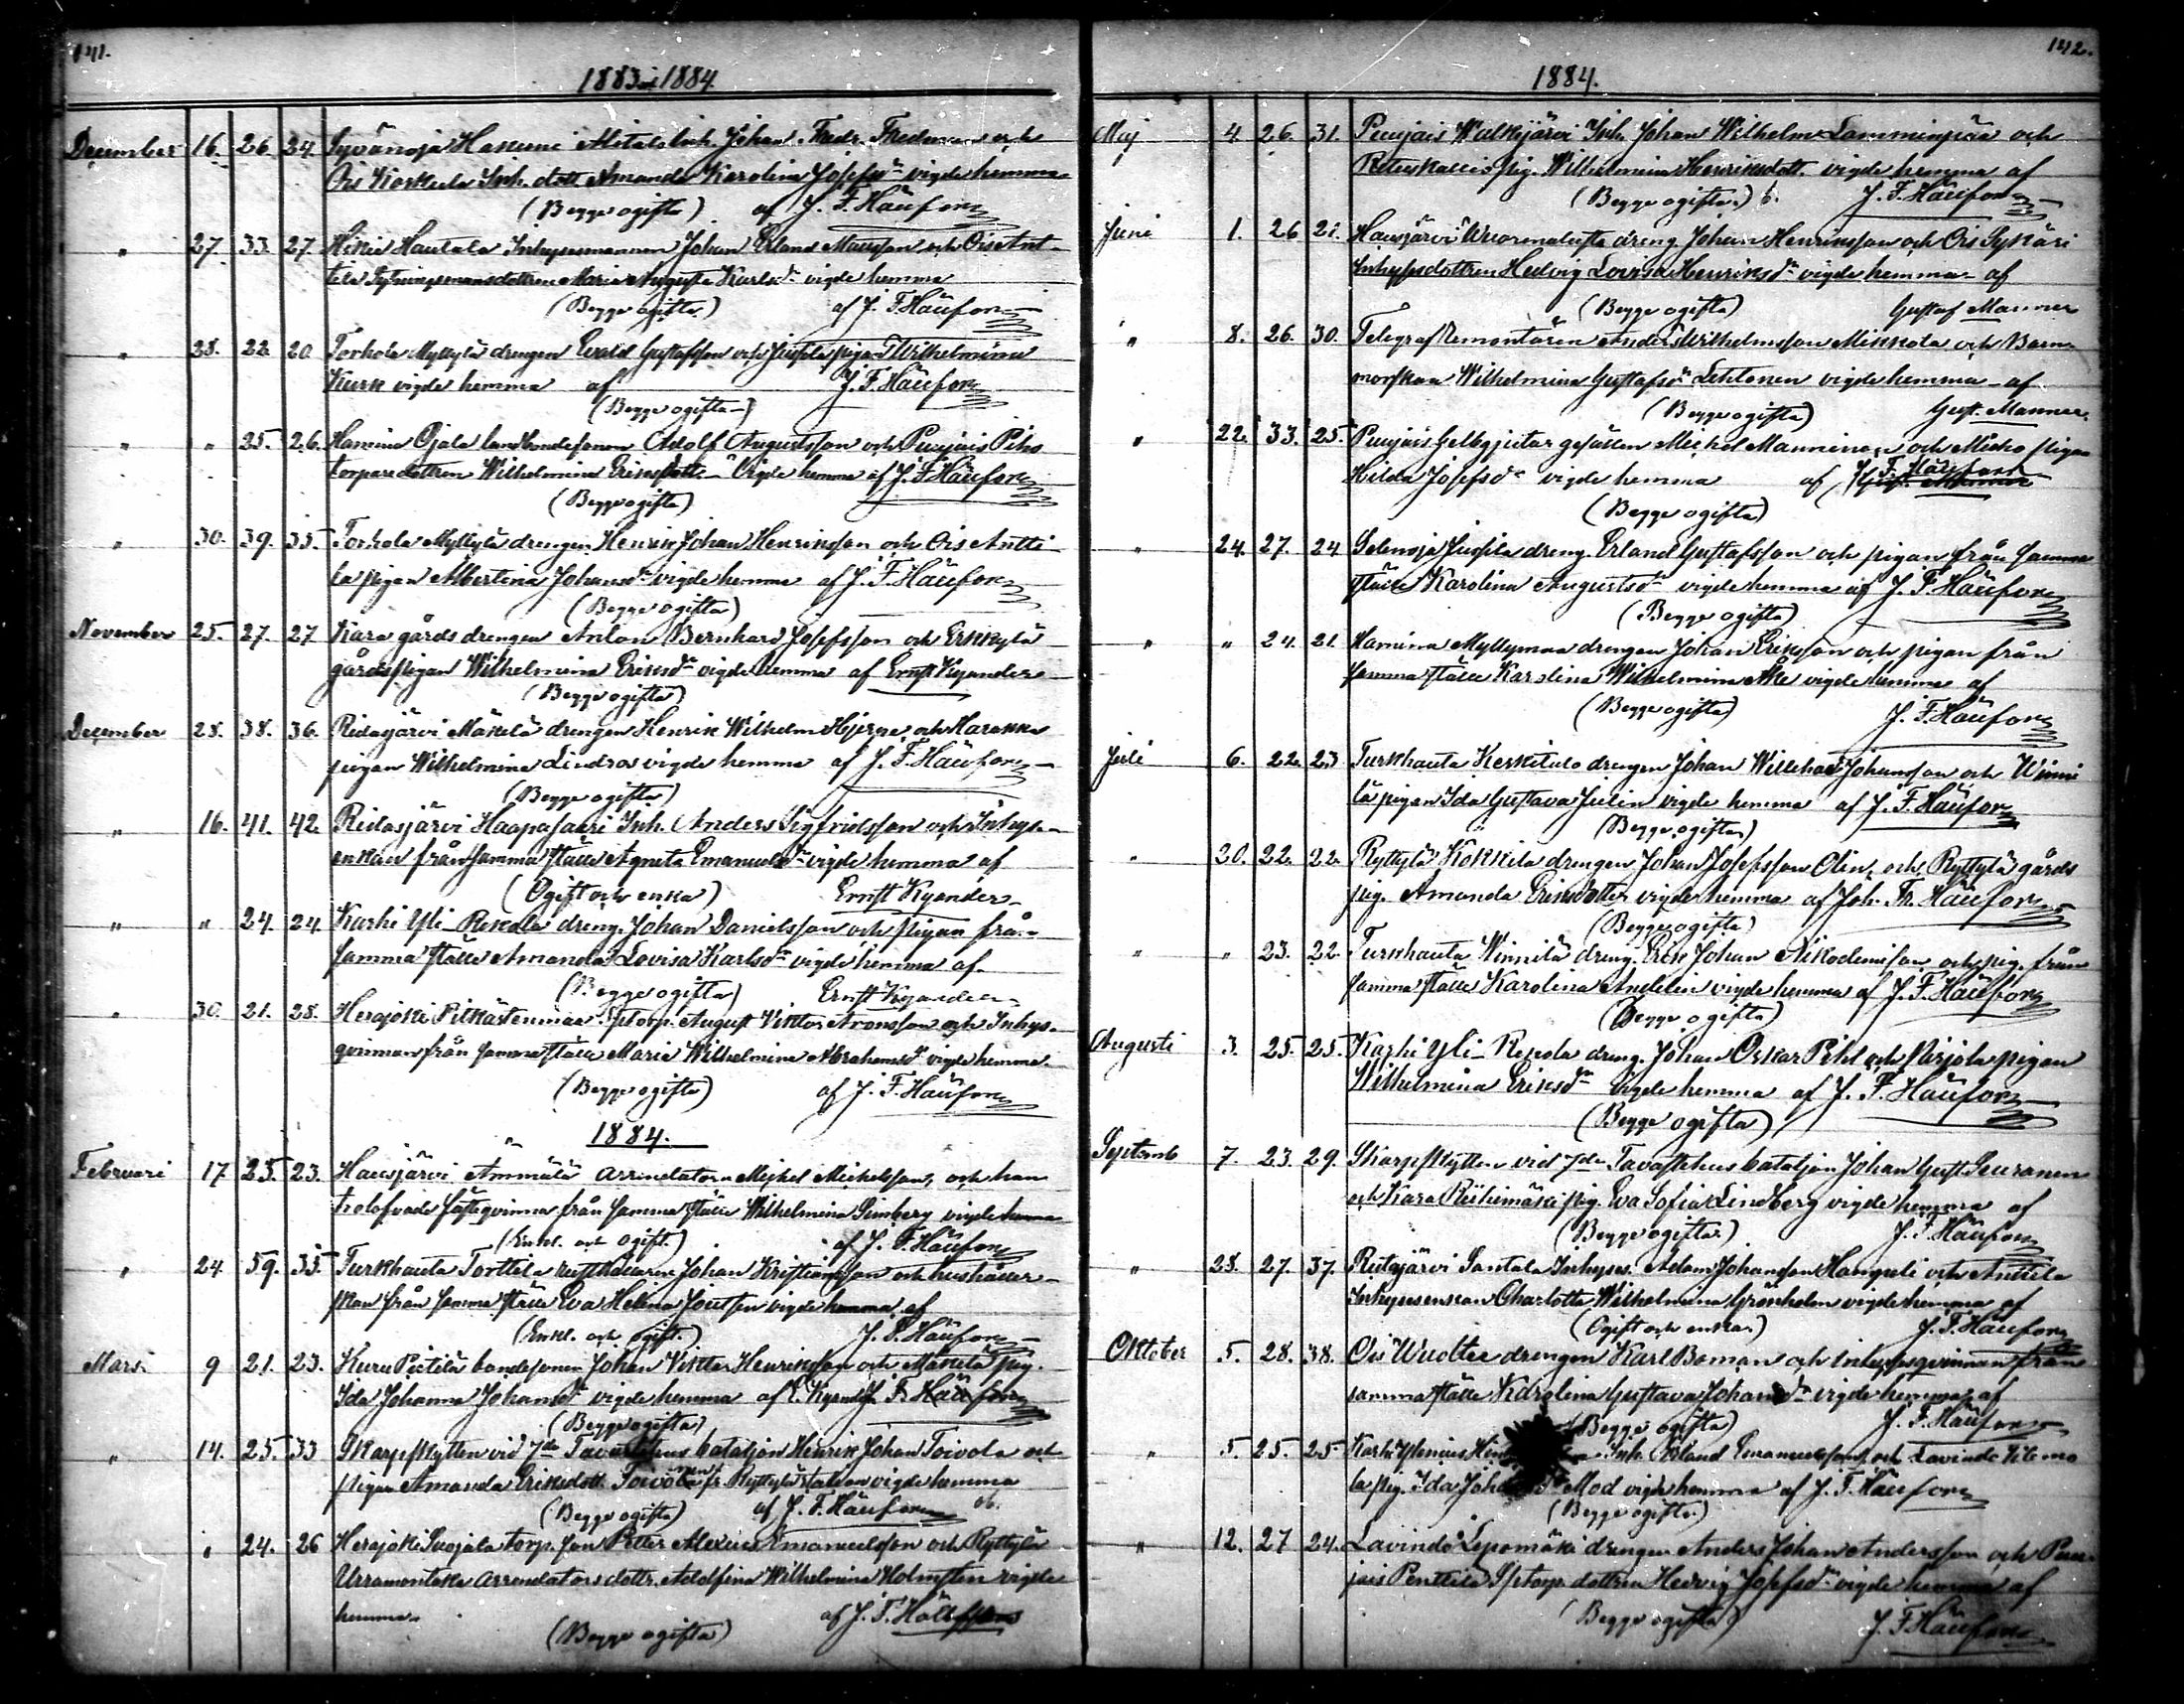 141.
1883 och 1884.
December 16. 26 24. Syvänoja Hakuni Mitals Inh. Johan Fredr. Fredman och
Ois Korkeela Inh. dott. Amanda Karolina Josefsdr vigde hemma
(Begge ogifta) af J. F. Häufors
" 27. 33. 27. Hikiä Hautala Inhysesmannen Johan Erland Mausson och Ois Ant-
tila Sytningsmansdottren Maria Augusta Karlsdr vigde hemma
(Begge ogifta) af J. F. Häufors
" 28. 22. 20 Torhola Myllylä drengen Evald Gustafsson och Jussila pigan Wilhelmina
Kurk vigde hemma af J. F. Häufors
(Begge ogifta)
" " 25. 26. Hamina Ojala landbondesonen Adolf Augustsson och Puujais Piho
torparedottren Wilhelmina Eriksdotter Vigde hemma af J. F. Häufors
(Begge ogifta)
" 30. 39. 35. Torhola Myllylä drengen Henrik Johan Henriksson och Ois Antti-
la pigan Albertina Johansdr vigde hemma af J. F. Häufors
(Begge ogifta)
November 25. 27. 27 Kara gårds drengen Anton Bernhard Josefsson och Erkkylä
gårds pigan Wilhelmina Eriksdr vigde hemma af Ernst Kyander
(Begge ogifta)
December 28. 38. 36. Ridasjärvi Mäkelä drengen Henrik Wilhelm Hjerpe och Harakka
pigan Wilhelmina Lindros vigde hemma af J. F. Häufors
(Begge ogifta)
" 16. 41. 42. Ridasjärvi Haapasaari Inh. Anders Sigfridsson och Inhyses-
enkan från samma ställe Agneta Emanuelsdr vigde hemma af
(Ogift och enka) Ernst Kyander
" " 24. 24. Karhi Yli-Rekola dreng. Johan Danielsson och pigan från
samma ställe Amanda Lovisa Karlsdr vigde hemma af
(Begge ogifta) Ernst Kyander
" 30. 21. 28. Herajoki Pitkästenmaa Sptorp. August Viktor Aronsson och Inhys-
qvinnan från samma ställe Maria Wilhelmina Abrahamsdr vigde hemma
(Begge ogifta) af J. F. Häufors
1884.
Februari 17 25. 23. Hausjärvi Ämmälä Arrendatorn Mickel Mickelsson, och han
trolofvade fästeqvinna från samma ställe Wilhelmina Sunberg vigde hemma
(Enkl. och ogift.) af J. F. Häufors
" 24. 59. 35. Turkhauta Torttila rusthållaren Johan Kristiansson och hushåller-
skan från samma ställe Eva Helena Joutsen vigde hemma af
(Enkl. och ogift.) J. F. Häufors
Mars 9 21. 23. Kuru Pietilä bondesonen Johan Viktor Henriksson och Mäkelä pig.
Ida Johanna Johansdr vigde hemma af E. Kyander J. F. Häufors
(Begge ogifta)
" 14. 25. 33 Skarpskytten vid 7de Tavastehus bataljon Henrik Johan Toivola och
pigan Amanda Eriksdott. Toivonen fr. Ryttylä station vigde hemma
(Begge ogifta) af J. F. Häufors
" 24. 26 Herajoki Suojala torp. son Petter Alexius Emanuelsson och Ryttylä
Urramontaka arrendators dottr. Adolfina Wilhelmina Holmsten vigde
hemma af J. F. Häufors
(Begge ogifta)
142.
1884.
Maj 4. 26. 31. Puujais Walkijärvi Inh. Johan Wilhelm Lamminpää och
Reteuskallio pig. Wilhelmina Henriksdott. vigde hemma af
(Begge ogifta) J. F. Häufors
Juni 1. 26 21. Hausjärvi Wuorenalusta dreng. Johan Henriksson och Ois Sykäri
Inhysesdottren Hedvig Lovisa Henriksdr vigde hemma af
(Begge ogifta) Gustaf Manner
" 8. 26. 30. Telegraf Remontören Anders Wilhelmsson Mikkola och Barn-
morskan Wilhelmina Gustafsdr Lehtonen vigde hemma af
(Begge ogifta) Gust. Manner
" 22. 33. 25. Puujais Gelbgjutar gesällen Mickel Manninen och Misko pigan
Hilda Josefsdr vigde hemma af J. F. Häufors
(Begge ogifta)
" 24. 27. 24 Selenoja Jussila dreng. Erland Gustafsson och pigan från samma
ställe Karolina Augustsdr vigde hemma af J. F. Häufors
(Begge ogifta)
" " 24. 21. Hamina Myllymaa drengen Johan Eriksson och pigan från
samma ställe Karolina Wilhelmina Åke vigde hemma af
(Begge ogifta) J. F. Häufors
Juli 6. 22 23 Turkhauta Keskitalo drengen Johan Willehad Johansson och Winni-
lä pigan Ida Gustava Julin vigde hemma af J. F. Häufors
(Begge ogifta)
" 20. 22. 22. Ryttylä Kokkila drengen Johan Josefsson Olin, och Ryttylä gårds
pig. Amanda Eriksdotter vigde hemma af Joh. Fr. Häufors
(Begge ogifta)
" " 23. 22. Turkhauta Winnilä dreng. Erik Johan Nikodemisson och pig. från
samma ställe Karolina Andelin vigde hemma af J. F. Häufors
(Begge ogifta)
Augusti 3. 25. 25. Karhi Yli-Rekola dreng. Johan Oskar Pihl och Parjola pigan
Wilhelmina Eriksdr vigde hemma af J. F. Häufors
(Begge ogifta)
Septemb 7. 23. 29. Skarpskytten vid 7de Tavastehus bataljon Johan Gust. Leuranen
och Kara Riihimäki pig. Eva Sofia Lindberg vigde hemma af
(Begge ogifta) J. F. Häufors
" 28. 27. 37. Ridasjärvi Santala Inhyses. Adam Johansson Hanguli och Anttila
Inhysesenkan Charlotta Wilhelmina Grönholm vigde hemma af
(Ogift och enka) J. F. Häufors
Oktober 5. 28. 38. Ois Wuoltee drengen Karl Boman och Inhysesqvinnan från
samma ställe Karolina Gustava Johansdr vigde hemma af
(Begge ogifta) J. F. Häufors
" 5. 25. 25 Karhi Inh. Erland Emanuelsson och Lavinto
la pig. Ida Mod vigde hemma af J. F. Häufors
(Begge ogifta)
" 12. 27 24. Lavindo Lepomäki drengen Anders Johan Andersson och Puu-
jais Penttilä Sptorp. dottren Hedvig Josefsdr vigde hemma af
(Begge ogifta) J. F. Häufors